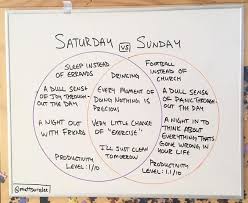 SATURDAY VS SUNDAY
SLEEP INSTEAD
OF ERRANDS
A DULL SENSE
OF JOY THROUGH-
OUT THE DAY
A NIGHT OUT
WITH FRIENDS
PRODUCTIVITY
LEVEL: 1/10
DRINKING
EVERY MOMENT OF
DOING NOTHING IS
PRECIOUS
VERY LITTLE CHANCE
OF "EXERCISE"
I'LL JUST CLEAN
TOMORROW
FOOTBALL
INSTEAD OF
CHURCH
A DULL SENSE
OF PANIC THROUGH-
OUT THE DAY
A NIGHT IN TO
THINK ABOUT
EVERYTHING THAT'S
GONE WRONG IN
YOUR LIFE
PRODUCTIVITY
LEVEL: 1/10
@mattsurelee